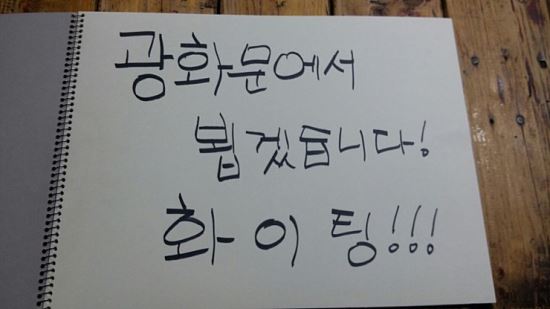 광화문에서
뵙겠습니다!
화이팅!!!